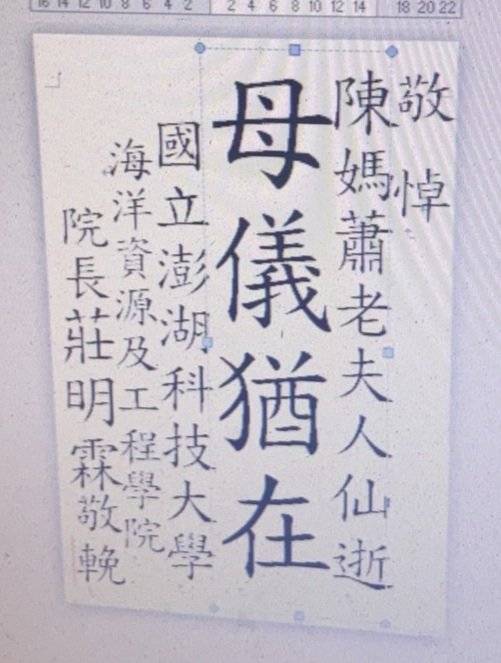 16 14 12 10 8 6 4 2 2 4 6 8 10 12 14 18 20 22
敬悼
陳媽蕭老夫人仙逝
母儀猶在
國立澎湖科技大學
海洋資源及工程學院
院長莊明霖敬輓